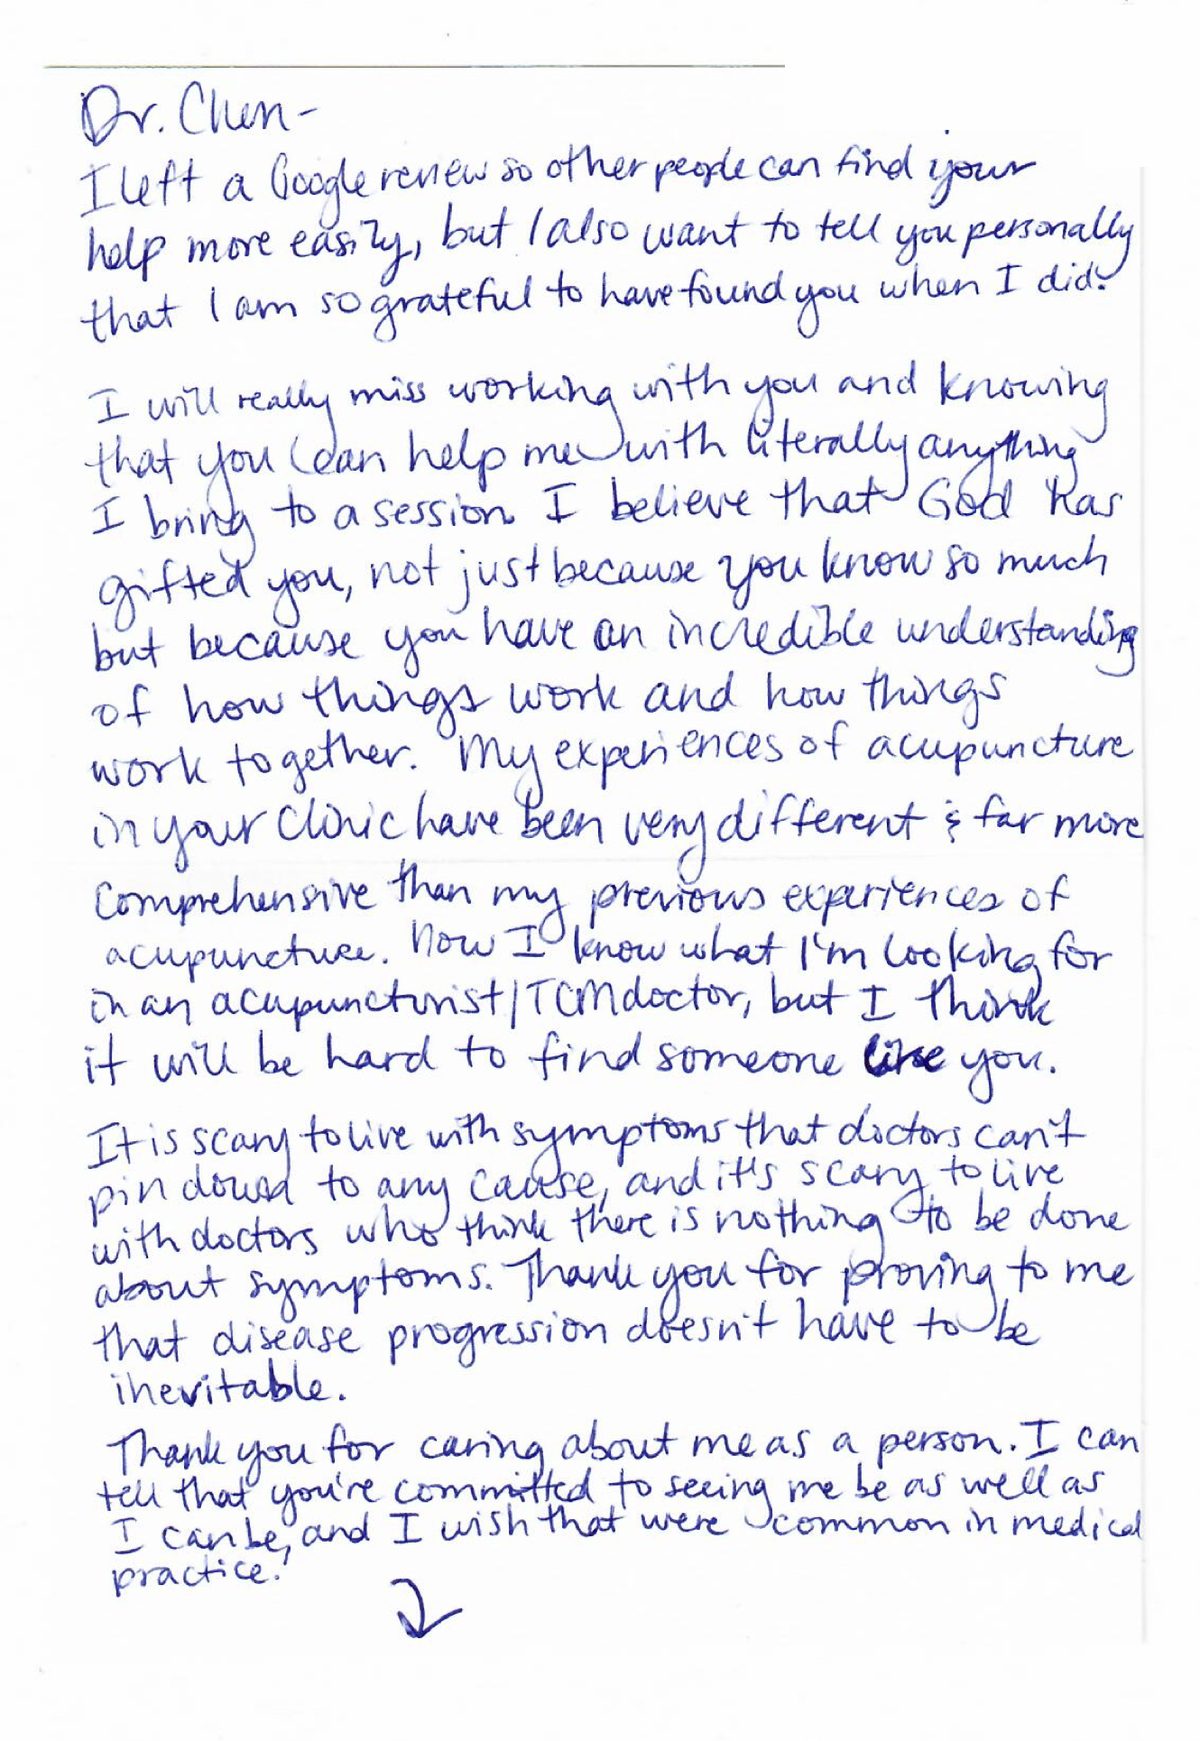 Dr. Chen-
I left a Google review so other people can find your
help more easily, but I also want to tell you personally
that I am so grateful to have found you when I did.
I will really miss working with you and knowing
that you can help me with literally anything
I bring to a session. I believe that God has
gifted you, not just because you know so much
but because you have an incredible understanding
of how things work and how things
work together. My experiences of acupuncture
in your clinic have been very different & far more
comprehensive than my previous experiences of
acupuncture. Now I know what I'm looking for
in an acupuncturist/TCM doctor, but I think
it will be hard to find someone like you.
It is scary to live with symptoms that doctors can't
pin down to any cause, and it's scary to live
with doctors who think there is nothing to be done
about symptoms. Thank you for proving to me
that disease progression doesn't have to be
inevitable.
Thank you for caring about me as a person. I can
tell that you're committed to seeing me be as well as
I can be, and I wish that were common in medical
practice.